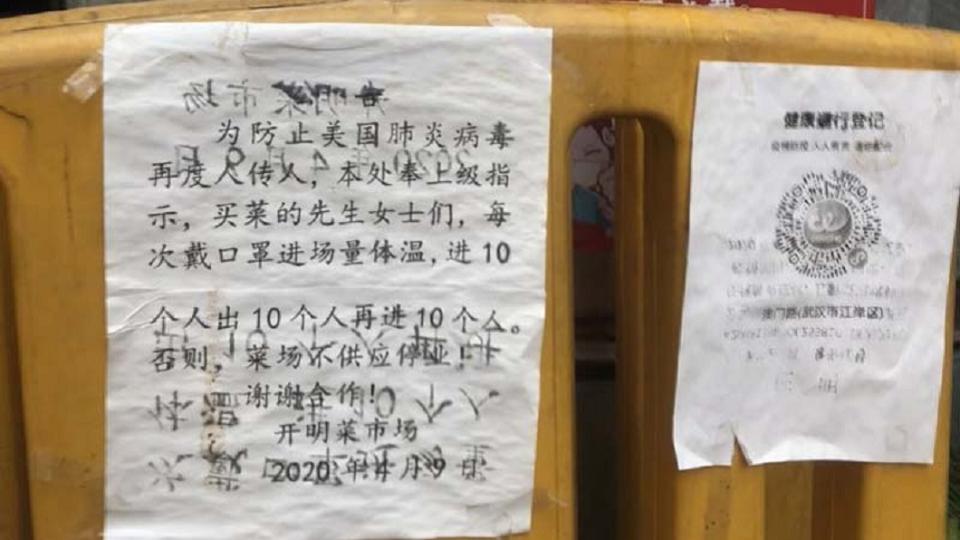 为防止美国肺炎病毒
再度人传人，本处奉上级指
示，买菜的先生女士们，每
次戴口罩进场量体温,进10
个人出10个人再进10个人。
否则，菜场不供应停业！
谢谢合作！
开明菜市场
2020年4月9日
健康通行登记
疫情防控 人人有责
澳门路(武汉市江岸区)